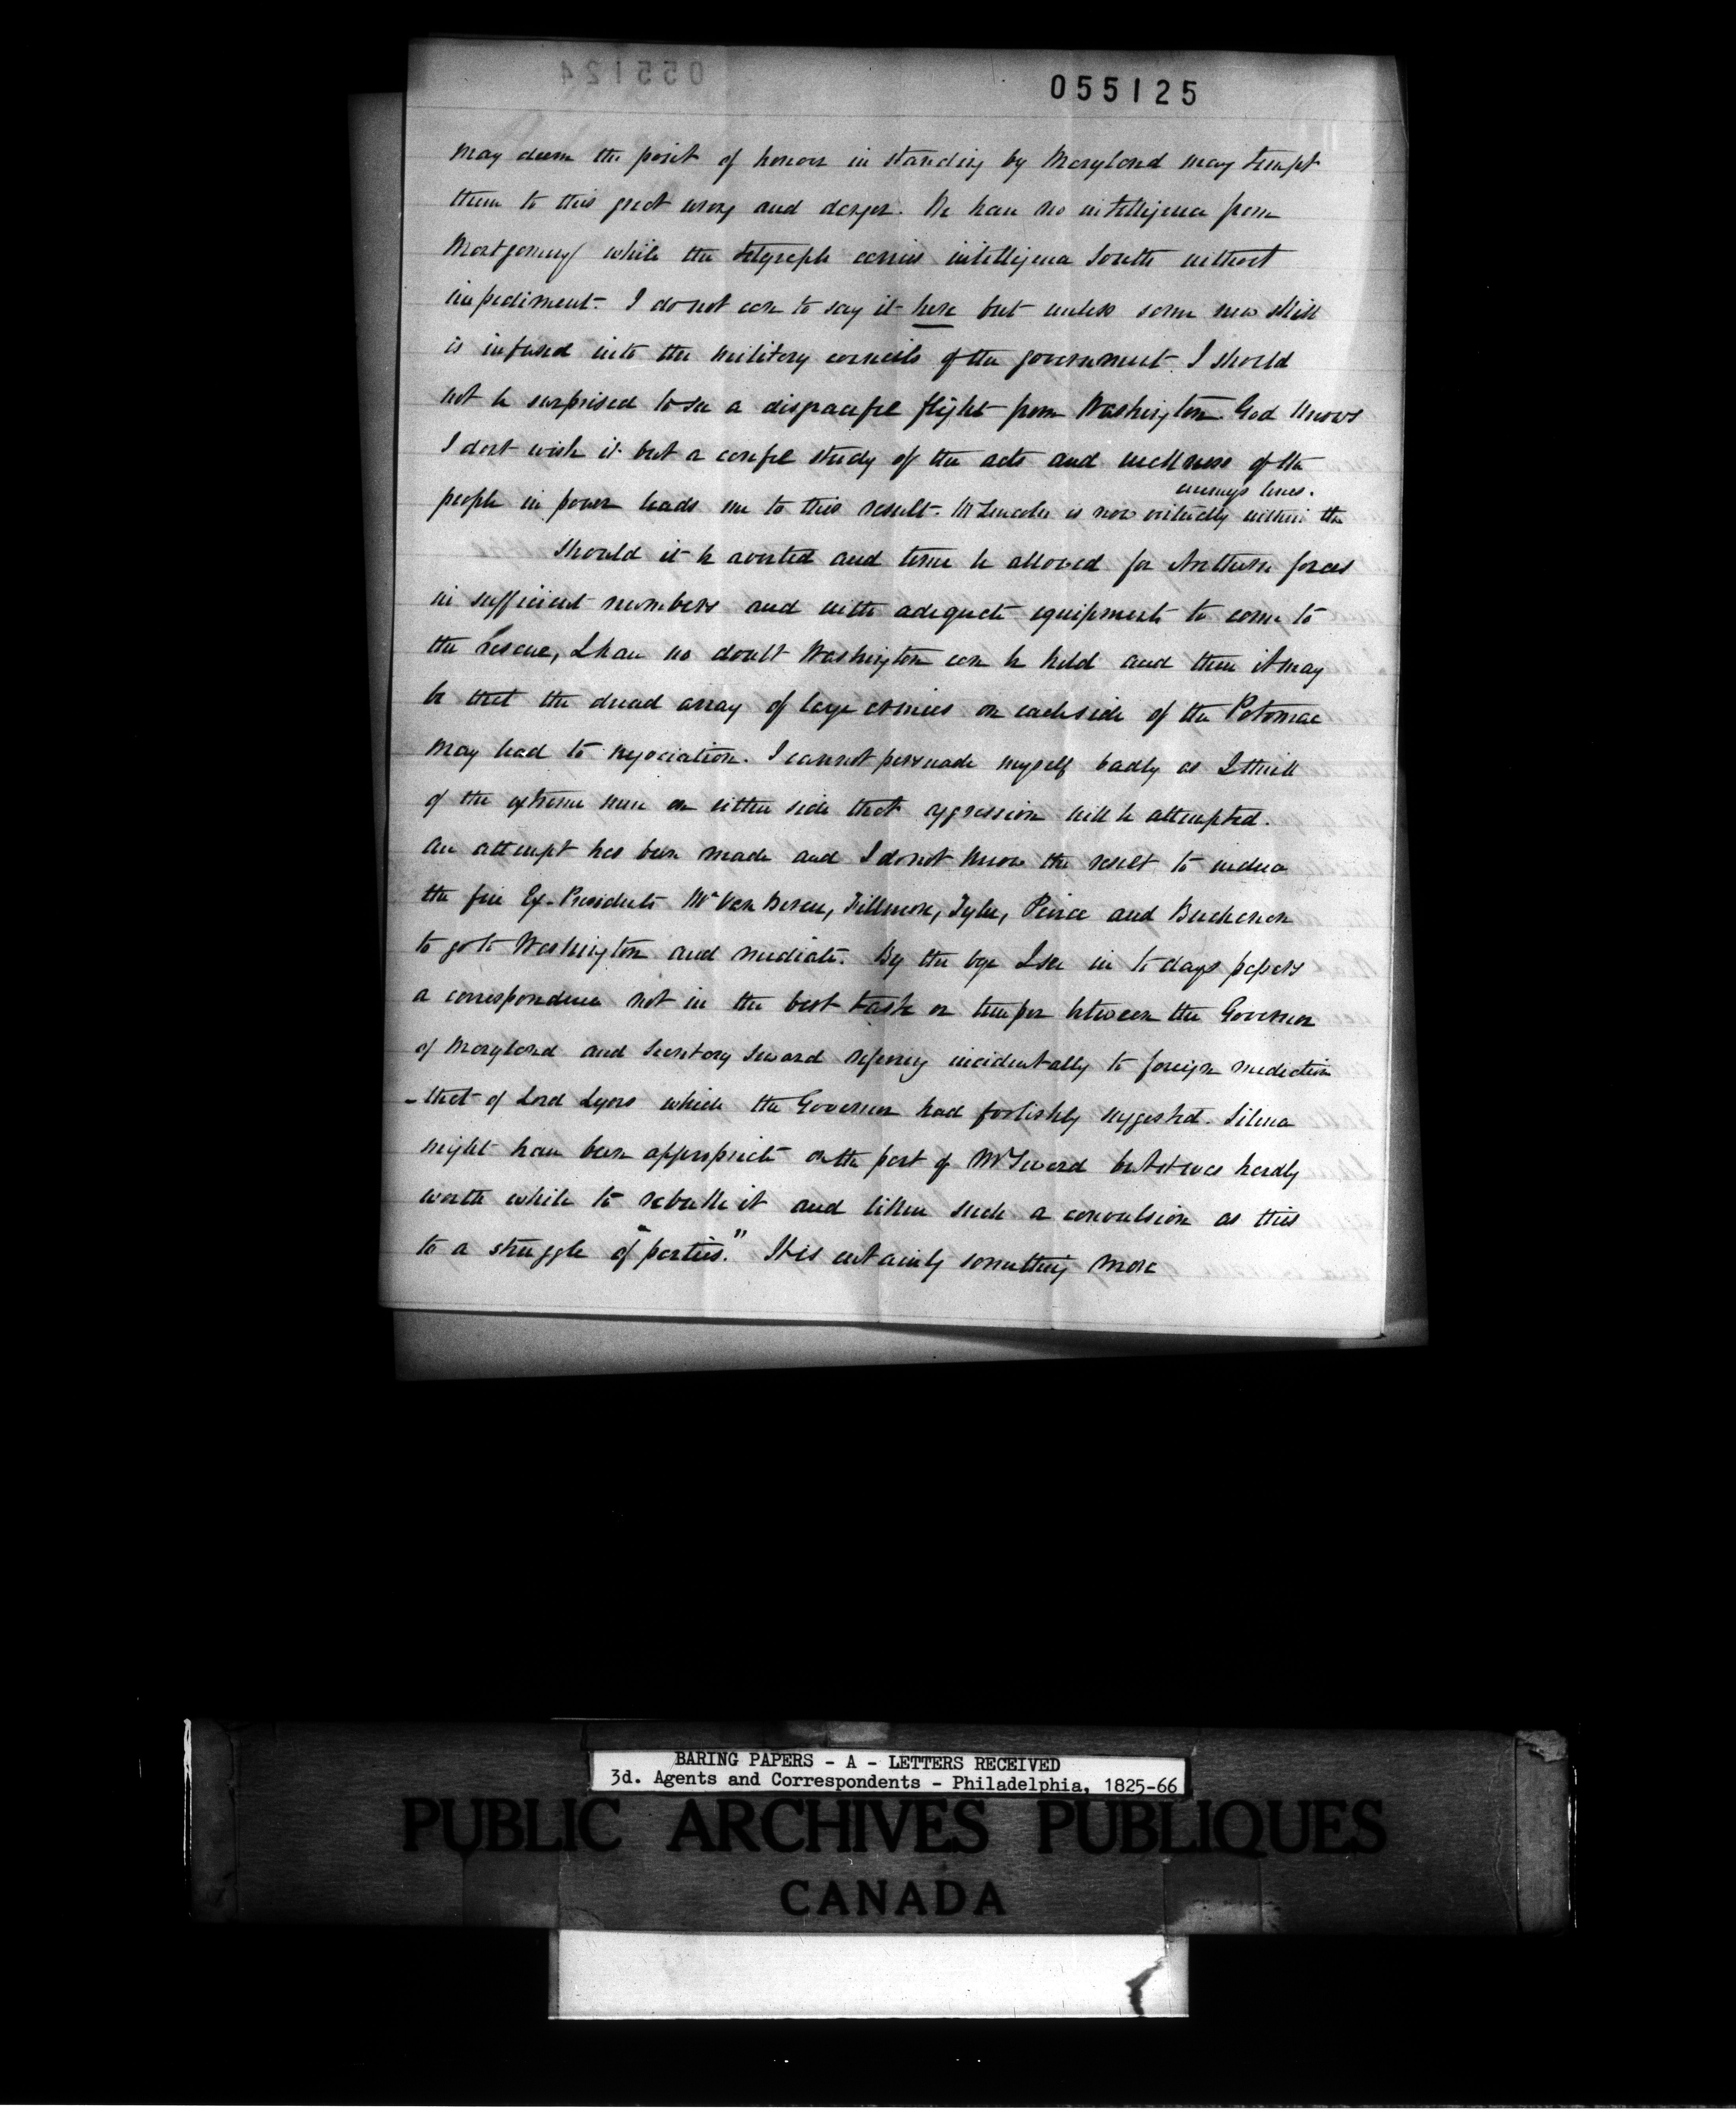 055124
055125
may deem the point of honour in standing by Maryland may tempt
them to this great wrong and danger. We have no intelligence from
Montgomery while the telegraph carries intelligence South without
impediment. I do not care to say it here but unless some new skill
is infused into the military councils of the government I should
not be surprised to see a disgraceful flight from Washington God knows
I dont wish it but a careful study of the acts and weakness of the
people in power leads me to this result. Mr Lincoln is now virtually within the
enemy's lines.
Should it be averted and time be allowed for Northern forces
in sufficient numbers and with adequate equipments to come to
the rescue, I have no doubt Washington can be held and then it may
be that the dread array of large armies on each side of the Potomac
may lead to negociation. I cannot persuade myself badly as I think
of the extreme men on either side that aggression will be attempted.
An attempt has been made and I do not know the result to induce
the five Ex-Presidents Mr Van Buren, Fillmore, Tyler, Peirce and Buchanan
to go to Washington and mediate. By the bye I see in to days papers
a correspondence not in the best taste or temper between the Governor
of Maryland and Secretary Seward referring incidentally to foreign mediation
- that of Lord Lyons which the Governor had foolishly suggested. Silence
might have been appropriate on the part of Mr Seward but it was hardly
worth while to rebuke it and liken such a convulsion as this
to a struggle of "parties." It is certainly something more
BARING PAPERS - A - LETTERS RECEIVED
3d. Agents and Correspondents - Philadelphia, 1825-66
PUBLIC ARCHIVES PUBLIQUES
CANADA